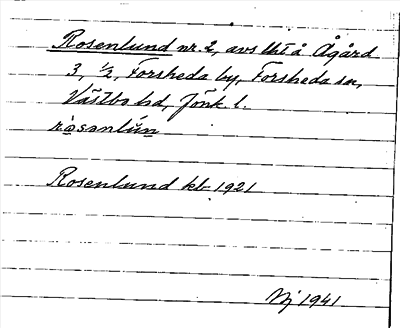 Rosenlund nr. 2, avs lht å Ågård
3, ½, Forsheda by, Forsheda sn,
Västbo hd, Jönk. l.
rosanlún
Rosenlund kb 1921
Nj 1941